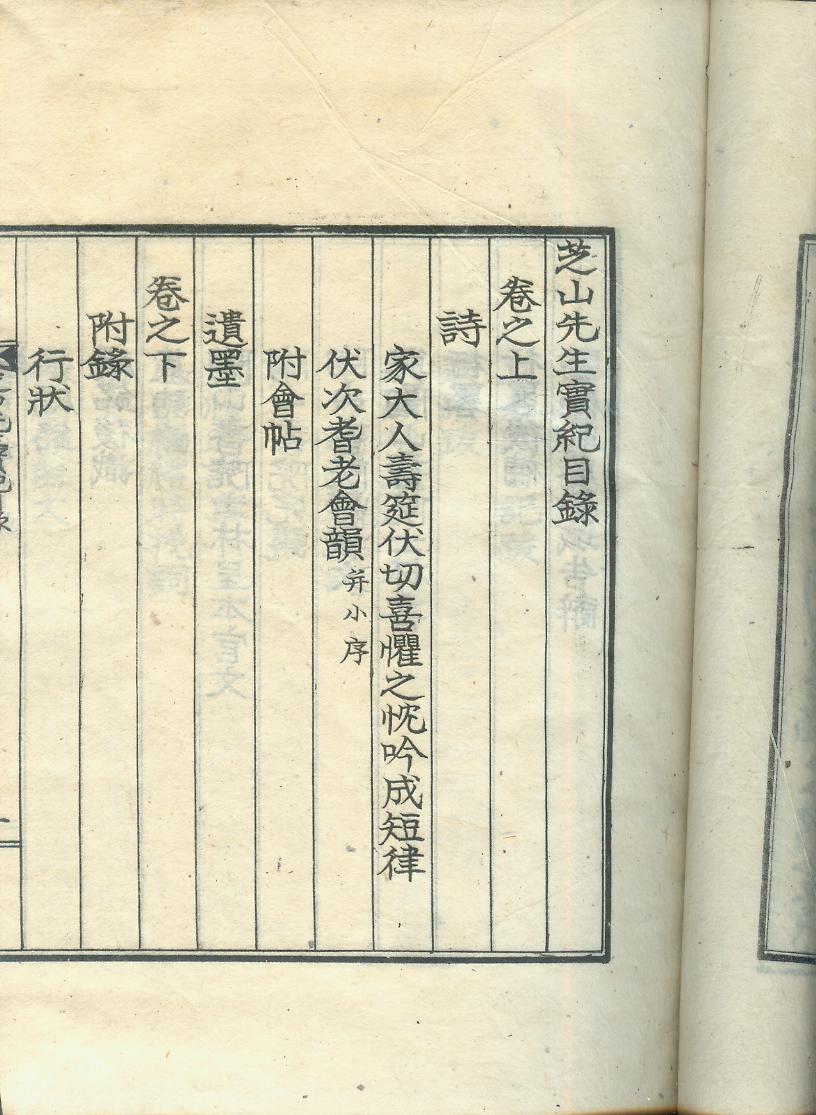 芝山先生實紀目錄
卷之上
詩
家大人壽筵伏切喜懼之忱吟成短律
伏次耆老會韻 幷小序
附會帖
遺墨
卷之下
附錄
行狀